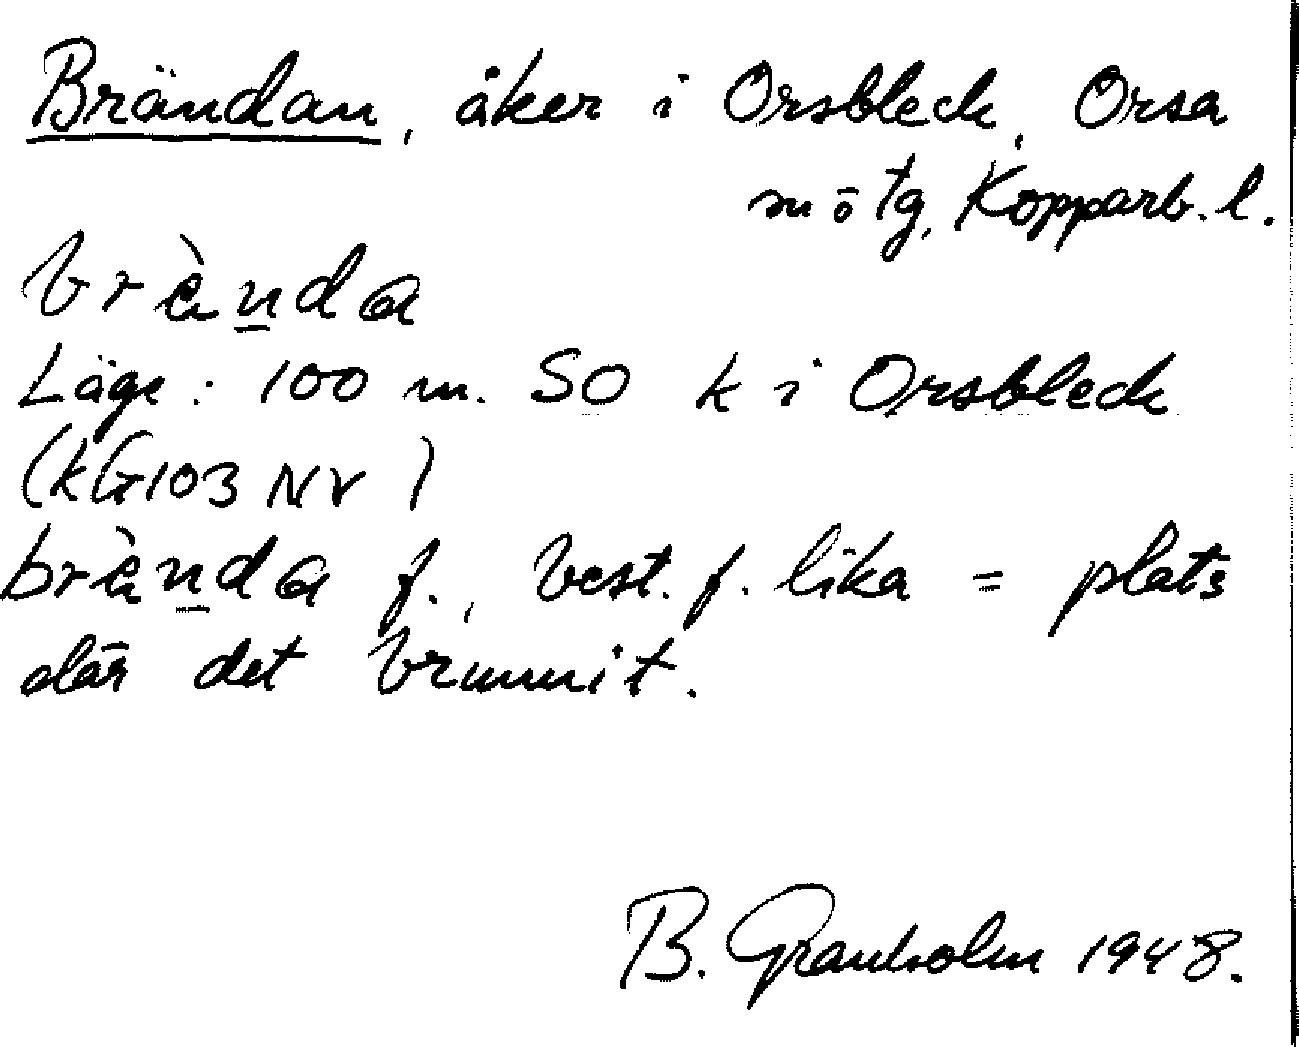 Brändan, åker i Orsbleck, Orsa
m ö tg, Kopparb. l.
brὲnda
Läge: 100 m. SO k i Orsbleck
(kG103 NV)
brὲnda f., best. f. lika = plats
där det brunnit.
B. Granholm 1948.